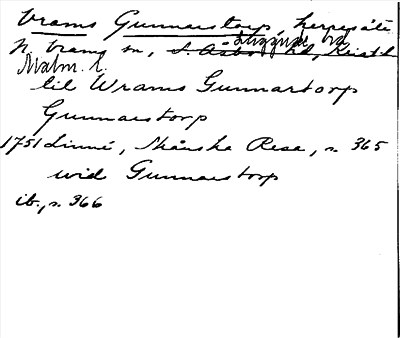 Vrams Gunnarstorp, herresäte
N. Vrams sn, S. Åsbo hd, Krist. l.
Luggude hd
Malm. l.
til Wrams Gunnartorp
Gunnarstorp
1751 Linné, Skånska Resa, s. 365
wid Gunnarstorp
ib., s. 366